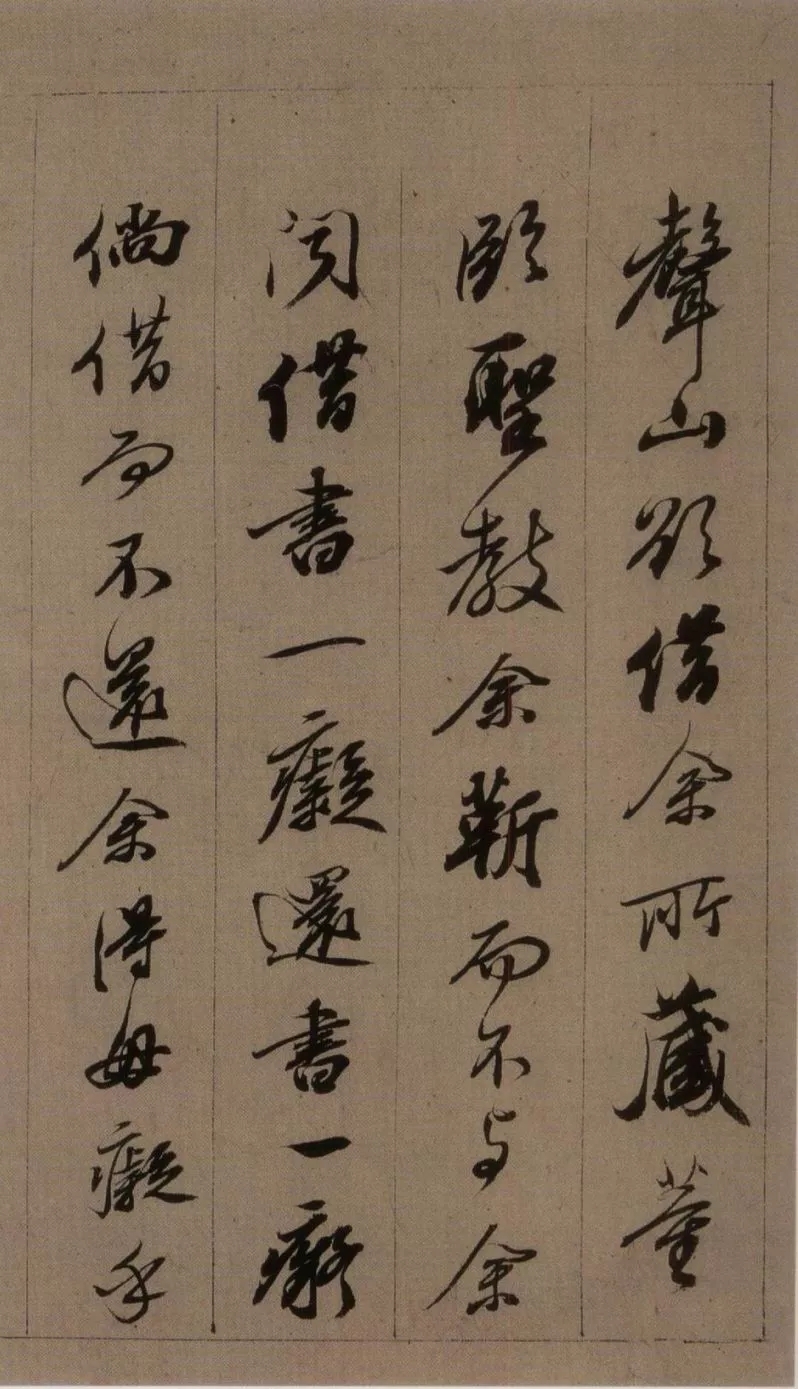 聲山欲借余所藏董
臨聖教余靳而不与余
闻借書一癡還書一癡
倘借而不還余得毋癡乎